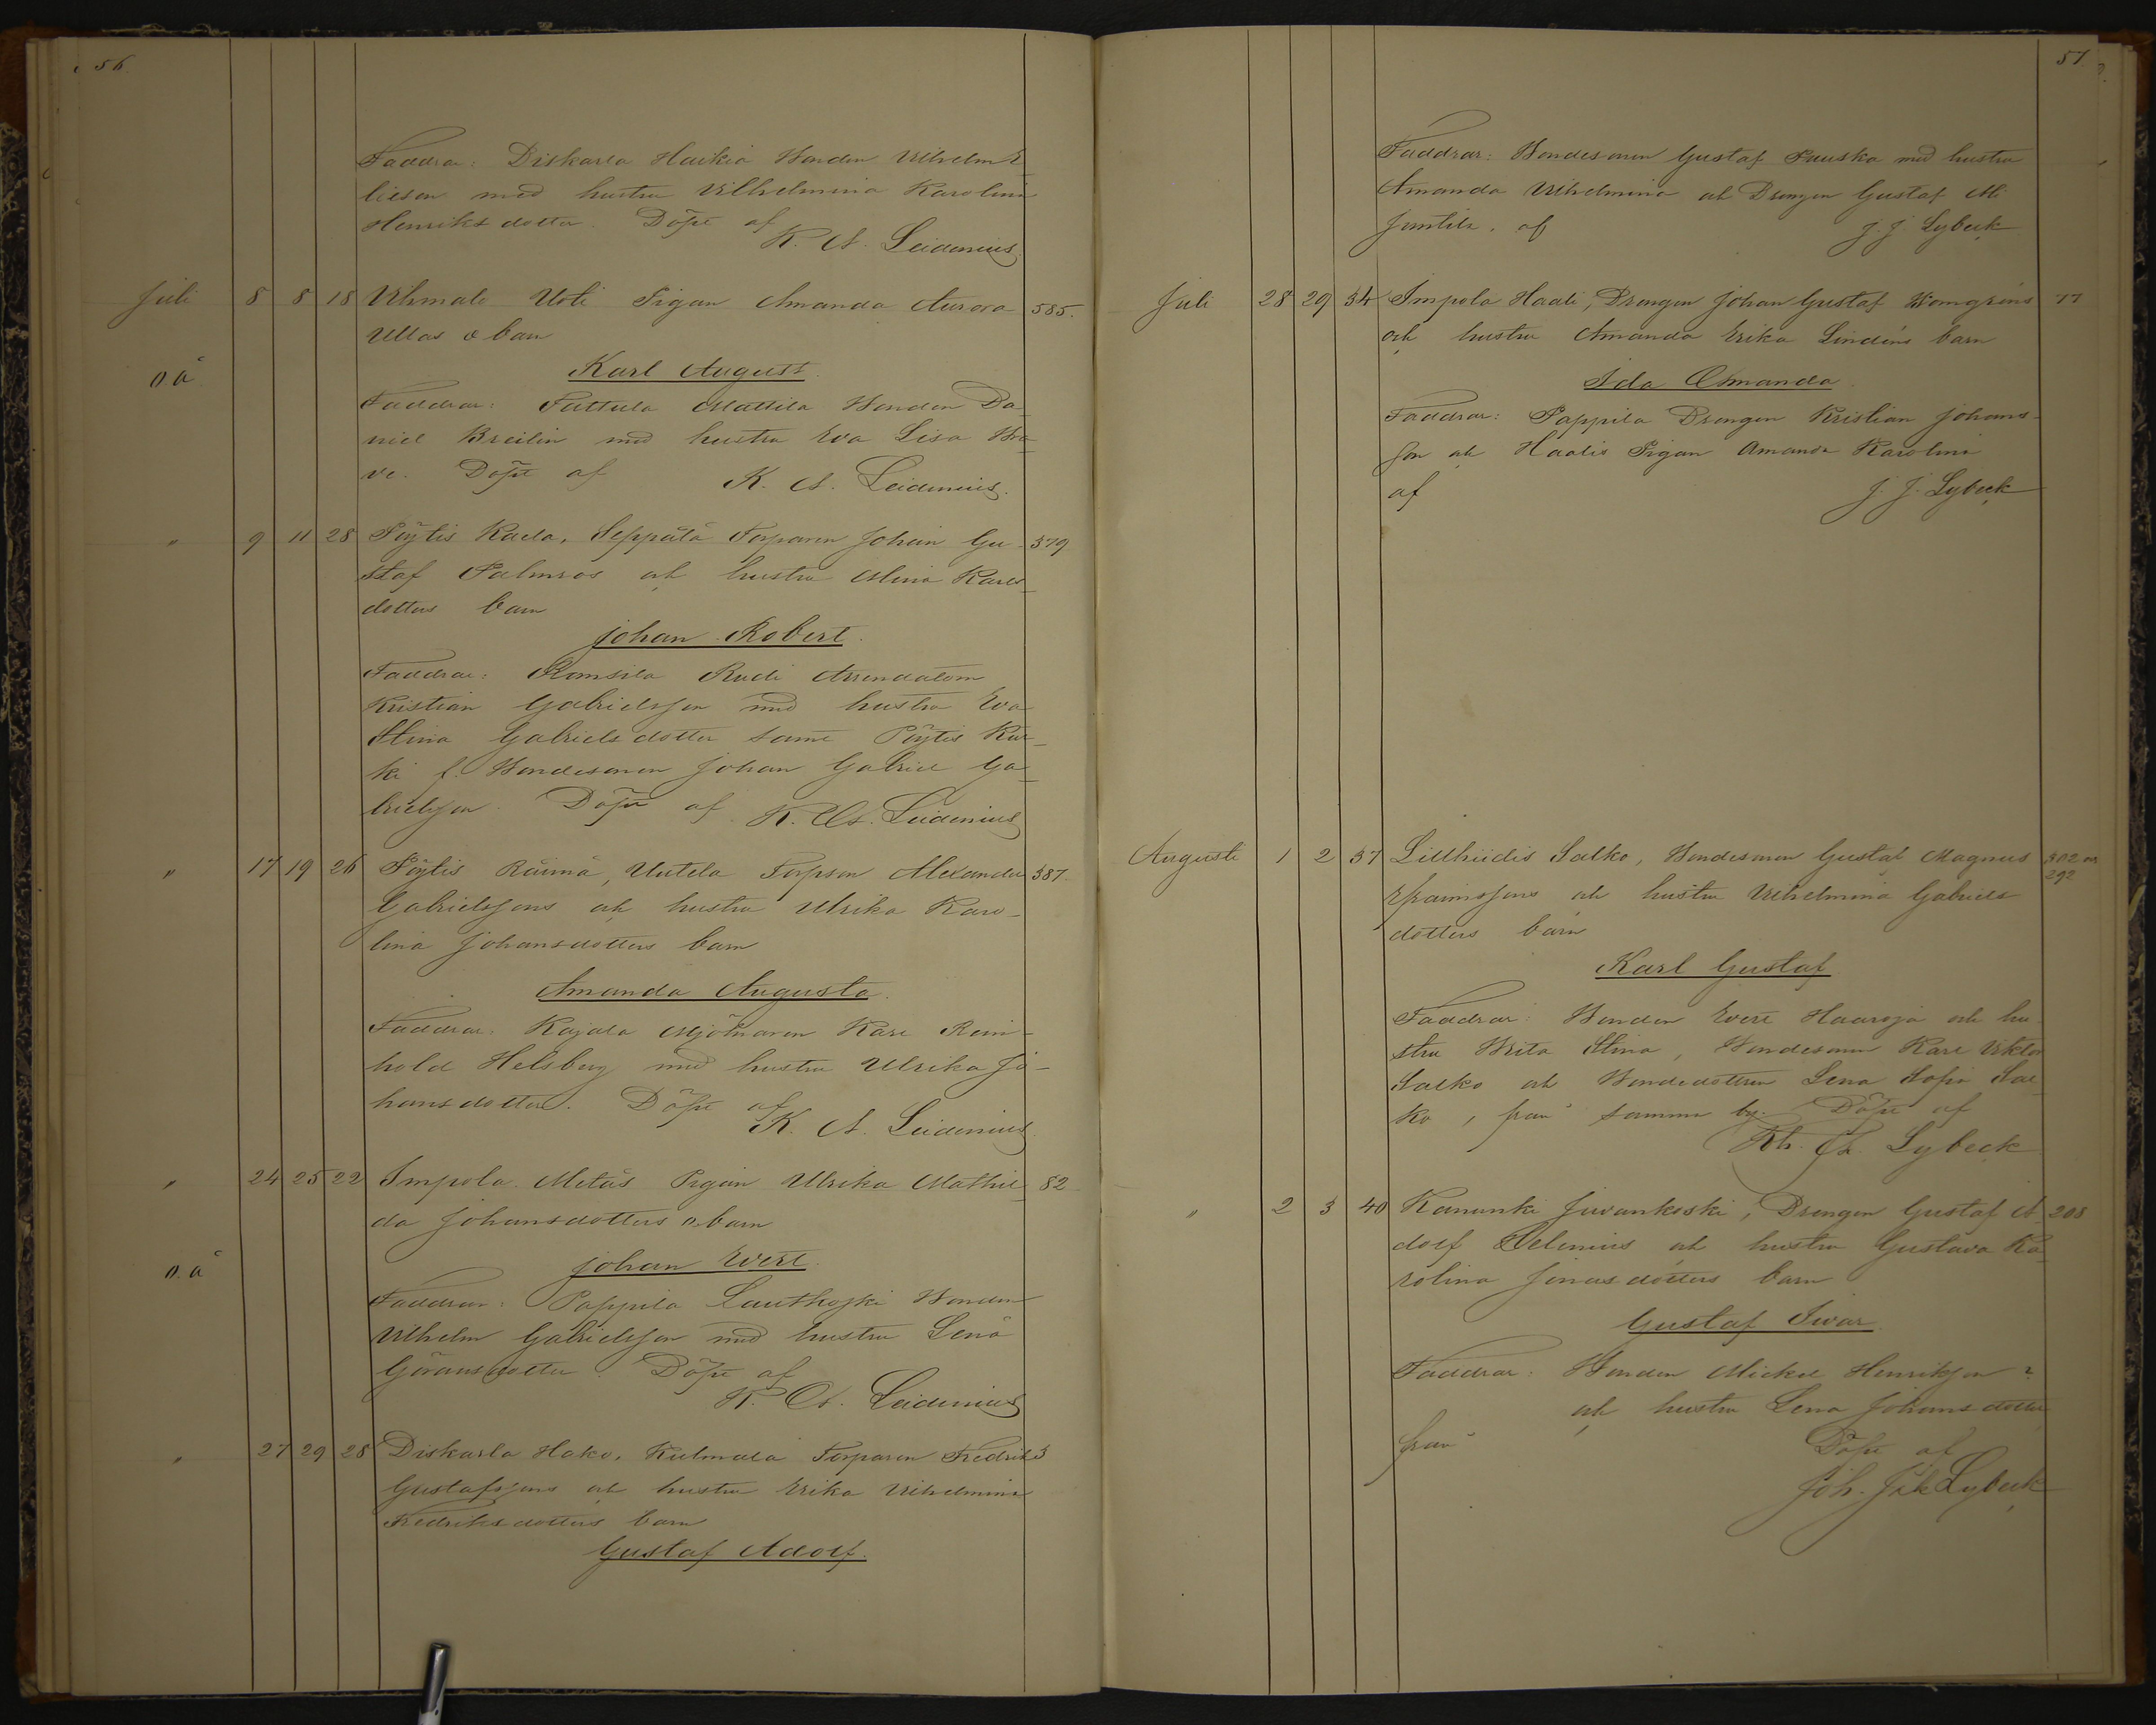 56.
Faddrar: Diskarla Heikiä Bonden Wilhelm E-
liesson med hustru Vilhelmina Karolina
Henriksdotter. Döpt af
K. A. Leidenius.
Juli 8 8 18 Vihmalo Uoti Pigan Amanda Aurora 585.
Ullas o barn
o ä
Karl August.
Faddrar: Pattula Mattila Bonden Da-
niel Breilin med hustru Eva Lisa Bra-
ve. Döpt af K. A. Leidenius.
" 9 11 28 Pöytis Kaela, Seppälä Torparen Johan Gu- 379
staf Palmros och hustru Mina Karls-
dotters barn
Johan Robert.
Faddrar: Ramsila Rudi Arrendatorn
Kristian Gabrielsson med hustru Eva
Stina Gabrielsdotter samt Pöytis Kar-
ki f. Bondesonen Johan Gabriel Ga-
brielsson. Döpt af K. A. Leidenius
" 17 19 26 Pöytis Räimä, Uutela Torparen Alexander 387.
Gabrielssons och hustru Ulrika Karo-
lina Johansdotters barn
Amanda Augusta.
Faddrar: Kajala Mjölnaren Karl Rein-
hold Helsberg med hustru Ulrika Jo-
hansdotter. Döpt af
K. A. Leidenius
" 24 25 22 Impola Metäs Pigan Ulrika Mathil- 82
da Johansdotters o. barn
o. ä
Johan Evert.
Faddrar: Pappila Lautkoski Bonden
Vilhelm Gabrielsson med hustru Lena
Göransdotter. Döpt af
K. A. Leidenius
" 27 29 28 Diskarla Hako, Kulmala Torparen Fredrik 3
Gustafssons och hustru Erika Vilhelmina
Fredriksdotters barn
Gustaf Adolf.
57.
Faddrar: Bondesonen Gustaf Pauska med hustru
Amanda Vilhelmina och Drengen Gustaf Mi
Juntila. af J. J. Lybeck
Juli 28 29 34 Impola Haali, Drengen Johan Gustaf Blomgréns 77
och hustru Amanda Erika Lindéns barn
Ida Amanda.
Faddrar: Pappila Drengen Kristian Johans-
son och Haalis Pigan Amanda Karolina
af J. J. Lybeck
Augusti 1 2 37 Lillhiidis Salko, Bondesonen Gustaf Magnus 302 och
292
Efraimssons och hustru Vilhelmina Gabriels
dotters barn
Karl Gustaf
Faddrar: Bonden Evert Haaroja och hu-
stru Brita Stina, Bondesonen Karl Viktor
Salko och Bondedottren Lena Sofia Sal-
ko, från samma by. Döpt af
Joh. Jk. Lybeck
" 2 3 40 Kanunki Juvankoski, Drengen Gustaf A- 208
dolf Helenius och hustru Gustava Ka-
rolina Jonasdotters barn
Gustaf Ivar.
Faddrar: Bonden Mickel Henriksson ?
och hustru Lena Johansdotter
från Döpt af
Joh. Jak Lybeck